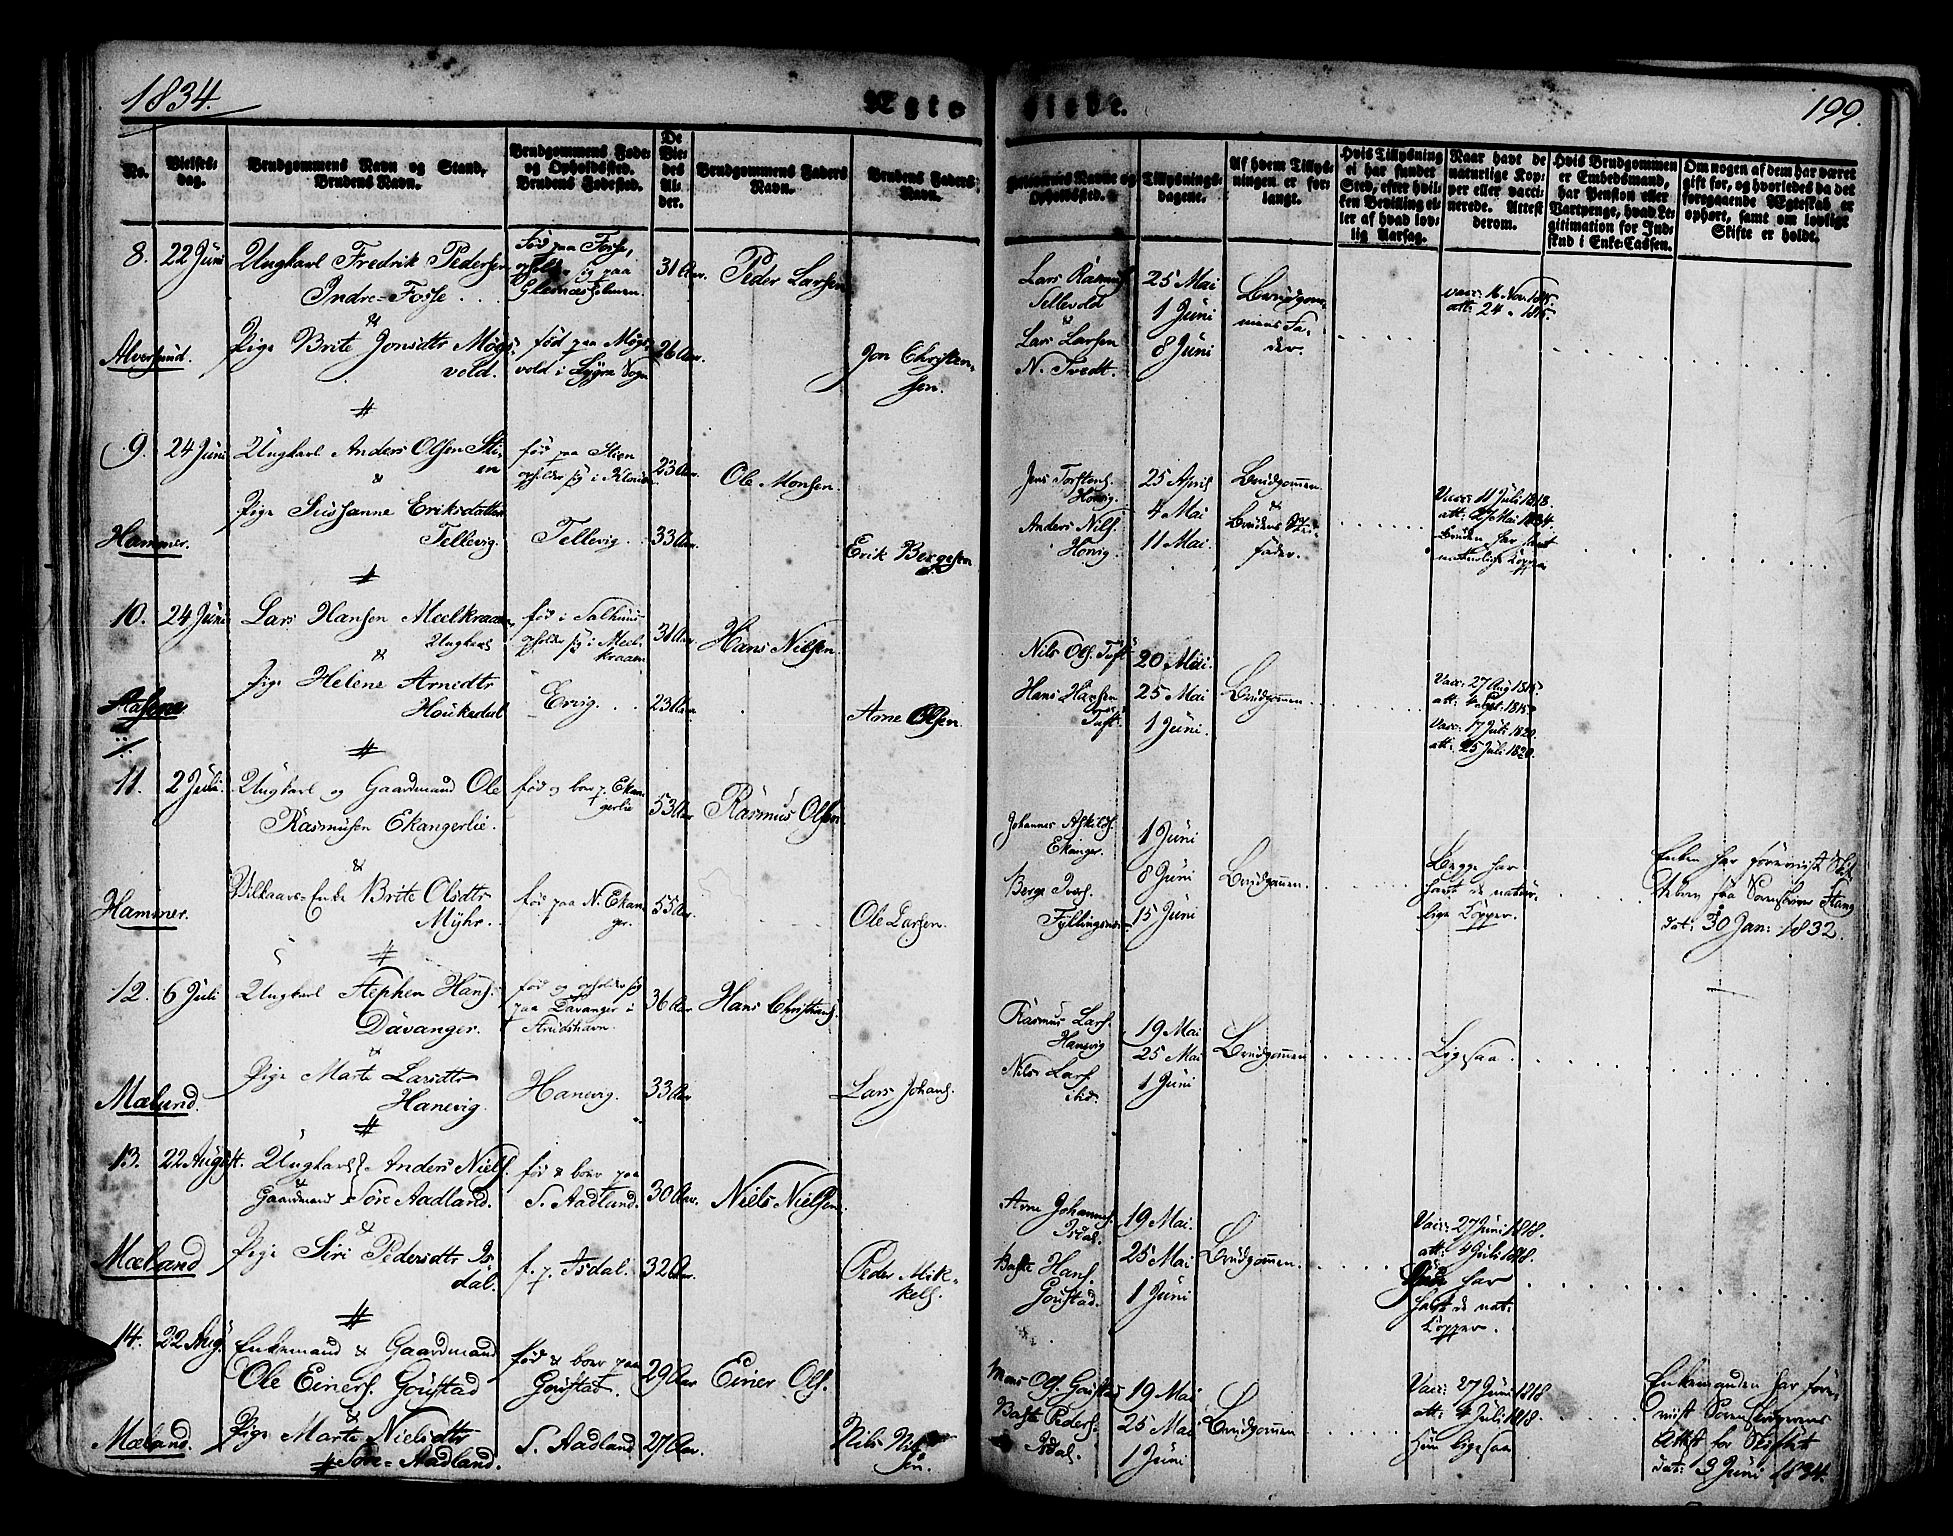 1834.
Ægte
skabe.
199.
No.
Vielses-
dag.
Brudgommens Navn og Stand,
Brudens Navn.
Brudgommens Føde-
og Opholdssted.
Brudens Fødested.
De
Vie-
des
Al-
der.
Brudgommens Faders
Navn.
Brudens Faders
Navn.
Forlovernes Navne og
Opholdssted.
Tillysnings-
dagene.
Af hvem Tillys-
ningen er for-
langt.
Hvis Tillysning
ei har fundet
Sted, efter hvil-
ken Bevilling el-
ler af hvad lov-
lig Aarsag.
Naar havt de
naturlige Kop-
per eller vacci-
nerede. Attest
derom.
Hvis Brudgommen
er Embedsmand,
har Pension eller
Vartpenge, hvad Le-
gitimation for Ind-
skud i Enke-Cassen.
Om nogen af dem har været
gift før, og hvorledes da det
foregaaende Ægteskab er
ophørt, samt om lovligt
Skifte er holdt.
8. 22 Juni
Ungkarl Fredrik Pedersen
Indre-Fosse
&
Alversund.
Pige Brite Jonsdtr Møgs-
vold.
fød paa Fosse,
opholder sig paa
31 Aar.
fød paa Møgs-
vold i Lygre Sogn
26 Aar.
Peder Larsen
Jon Christen-
sen.
Lars Rasmus
Tellevold
&
Lars Larsen
N. Tvedt.
25 Mai
1 Juni
8 Juni
Brudgom-
mens Fa-
der.
vacc: 16 Nov. 1815.
att: 24 " 1815.
#
9. 24 Juni
Ungkarl Anders Olsen Sti-
en
&
Pige Susanne Eriksdatter
Tellevig.
Hammer.
fød paa Stien
opholder sig i
23 Aar.
Tellevig.
33 Aar.
Ole Monsen.
Erik Bergesen
Jens Torstens.
Honvig.
Anders Nils.
Honvig.
25 April
4 Mai
11 Mai.
Brudgommen
&
Brudens
fader.
Vacc: 11 Juli 1818.
att: 27 Mai 1834.
Bruden har havt
naturlige Kopper
#
10. 24 Juni
Lars Hansen Meelkraaen
Ungkarl
&
Pige Helene Arnedtr
Houkedal
fød i Salhuus
opholder sig i Meel-
kraaen
31 Aar.
Hans Nilsen.
23 Aar.
Arne Olsen.
Nils Ols. Tuft
Hans Hansen
Tuft.
20 Mai.
25 Mai
1 Juni.
Brudgommen
Vacc: 27 Aug 1815
att: 4 Sept. 1815
Vacc: 17 Juli 1820.
att: 25 Juli 1820.
#
11. 2 Juli.
Ungkarl og Gaardmand Ole
Rasmusen Ekangerlie.
&
Vilkaars-Enke Brite Olsdtr
Myhr.
Hammer.
fød og boer p. Ekan-
gerlie
53 Aar
fød paa N. Ekan-
ger.
55 Aar.
Rasmus Olsen
Ole Larsen.
Johannes Askilds.
Ekanger.
Berge Ivers.
Fyllingsnes
1 Juni
8 Juni
15 Juni
Brudgommen.
Begge har
havt de natur-
lige Kopper.
Enken har forevist Skif-
tebrev fra Sorenskriver Stang
dat: 30 Jan: 1832.
#
12. 6 Juli
Ungkarl Stephen Hans.
Davanger.
&
Pige Marte Larsdtr
Hanevig.
Mæland.
fød og opholder sig
paa Davanger i
Strudshavn.
36 Aar
Hanevig.
33 Aar
Hans Christians.
Lars Johans.
Rasmus Lars.
Hanevig
Nils Lars.
ibd.
19 Mai
25 Mai
1 Juni
Brudgommen
Ligesaa
#
13. 22 August.
Ungkarl Anders Niels.
&
Gaardmand Søre Aadland.
&
Pige Siri Pedersdtr Is-
dal.
Mæland
fød & boer paa
S. Aadland.
30 Aar
f. p. Isdal.
32 Aar.
Niels Nielsen.
Peder Mik-
kels.
Arne Johannes.
Isdal.
Baste Hans.
Goustad.
19 Mai.
25 Mai
1 Juni
Brudgommen.
Vacc: 27 Juni 1818.
att: 4 Juli 1818.
har
havt de nat:
Kopper.
#
14. 22 Aug.
Enkemand & Gaardmand
Ole Einers. Goustad
&
Pige Marte Nielsdtr
Søre-Aadland.
Mæland.
fød & boer paa
Goustad.
29 Aar
S. Aadland
27 Aar.
Einer Ols.
Nils Nil-
sen.
Mons Ols. Goustad
Baste Peders.
Isdal.
19 Mai
25 Mai
1 Juni
Brudgommen
Vacc: 27 Juni 1818.
att: 4 Juli 1818.
Hun ligesaa
Enkemanden har fore-
viist Sorenskriverens
Attest for Skiftet
dat: 9 Juni 1834.